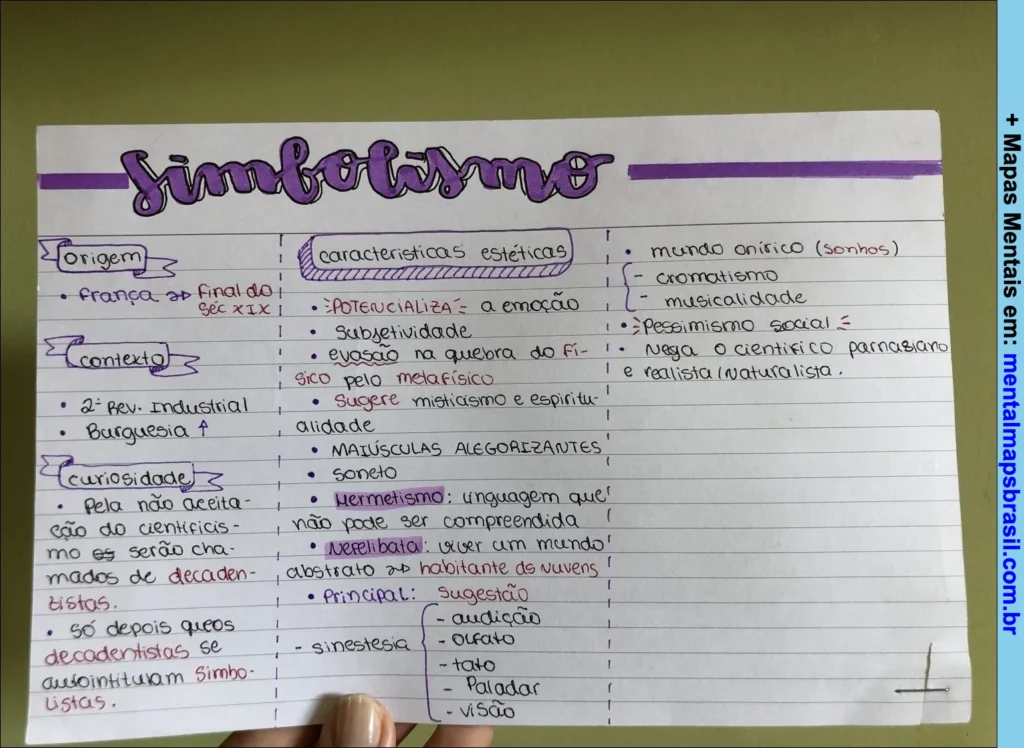 Simbolismo
origem
• França → Final do
séc XIX
contexto
• 2ª Rev. Industrial
• Burguesia ↑
curiosidade
• Pela não aceita-
ção do cientificis-
mo os serão cha-
mados de decaden-
tistas.
• Só depois que os
decadentistas se
autointitulam Simbo-
listas.
características estéticas
• POTENCIALIZA a emoção
• Subjetividade
• evasão na quebra do fí-
sico pelo metafísico
• Sugere misticismo e espiritu-
alidade
• MAIÚSCULAS ALEGORIZANTES
• soneto
• Hermetismo: linguagem que
não pode ser compreendida
• Nefelibata: viver um mundo
abstrato → habitante ds nuvens
• Principal: Sugestão
- sinestesia
- audição
- olfato
- tato
- Paladar
- visão
• mundo onírico (sonhos)
- cromatismo
- musicalidade
• Pessimismo social
• Nega o científico parnasiano
e realista/naturalista.
+ Mapas Mentais em: mentalmapsbrasil.com.br